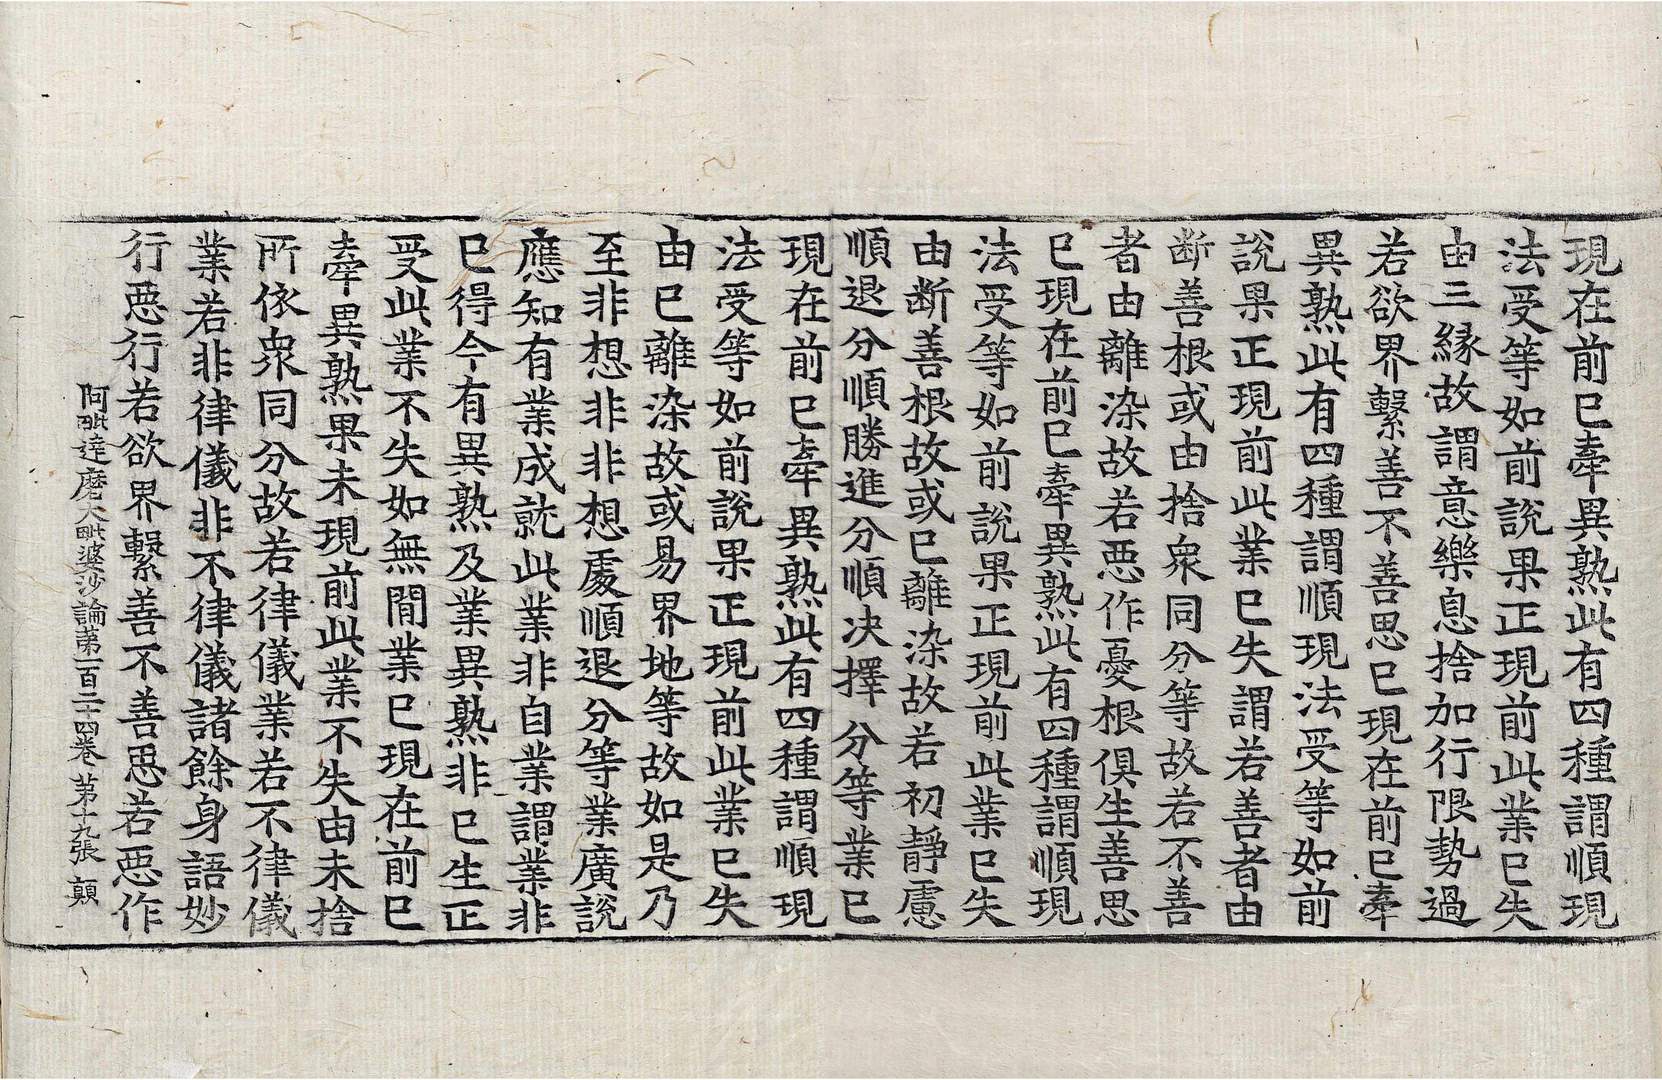 現在前已牽異熟此有四種謂順現
法受等如前說果正現前此業已失
由三緣故謂意樂息捨加行限勢過
若欲界繫善不善思已現在前已牽
異熟此有四種謂順現法受等如前
說果正現前此業已失謂若善者由
斷善根或由捨衆同分等故若不善
者由離染故若惡作憂根俱生善思
已現在前已牽異熟此有四種謂順現
法受等如前說果正現前此業已失
由斷善根故或已離染故若初靜慮
順退分順勝進分順決擇分等業已
現在前已牽異熟此有四種謂順現
法受等如前說果正現前此業已失
由已離染故或易界地等故如是乃
至非想非非想處順退分等業廣說
應知有業成就此業非自業謂業非
已得今有異熟及業異熟非已生正
受此業不失如無間業已現在前已
牽異熟果未現前此業不失由未捨
所依衆同分故若律儀業若不律儀
業若非律儀非不律儀諸餘身語妙
行惡行若欲界繫善不善思若惡作
阿毗達磨大毗婆沙論第一百二十四卷 第十九張 顛